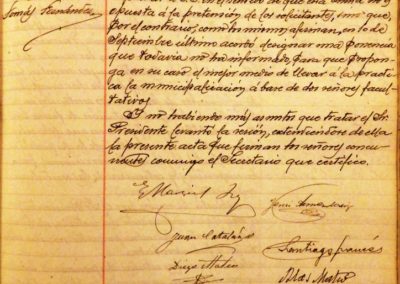 Tomás Fernández
opuesta á la pretensión de los solicitantes, sino que
por el contrario, como tu mismo afirman, en 10 de
Septiembre último acordó designar una ponencia
que todavía no ha informado, para que propon-
ga en su caso el mejor medio de llevar a la practi-
ca la municipalizacion a base de dos señores facul-
tativos.
Y no habiendo más asuntos que tratar el Sr.
Presidente levantó la sesión, extendiendose de ella
la presente acta que firman los señores concu-
rrentes conmigo el Secretario que certifico.
Juan Catalán
Santiago
Diego Mateo
Blas Mateo